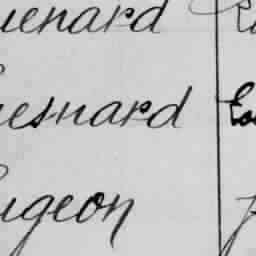 uenard
uesnard
ugeon